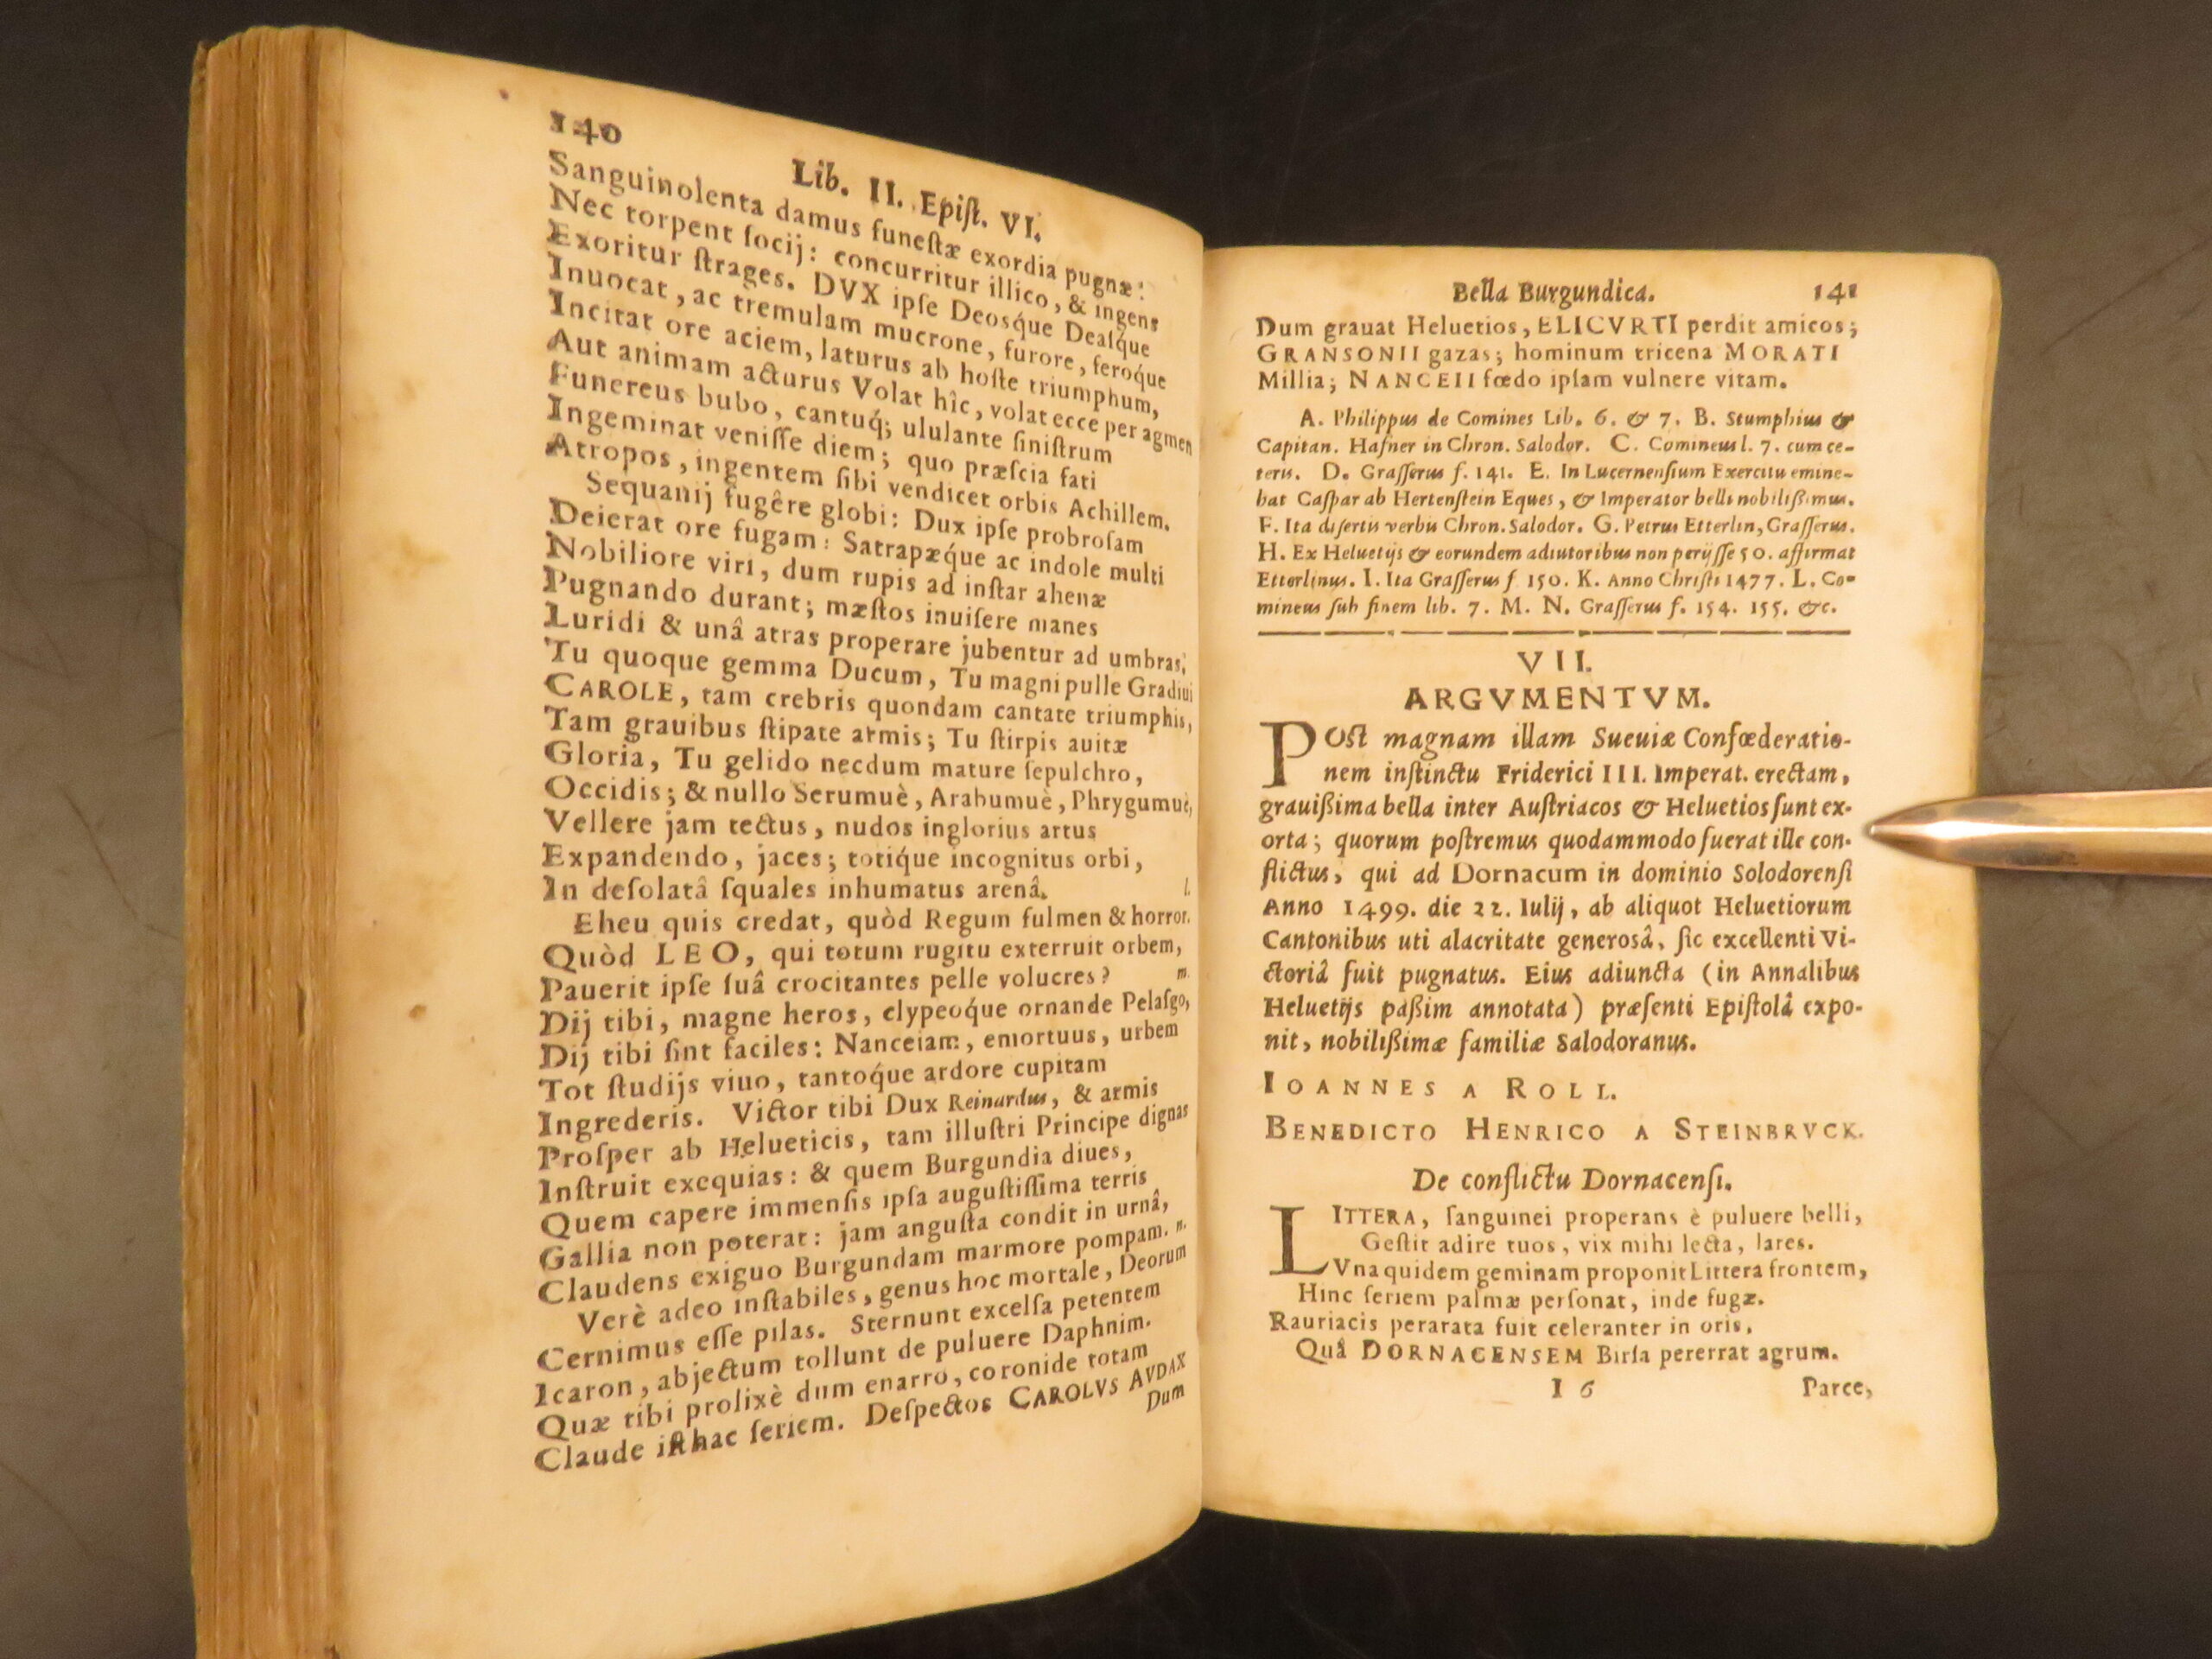 140
Lib. II. Epiſt. VI.
Sanguinolenta damus funeſtæ exordia pugnæ:
Nec torpent ſocij: concurritur illico, & ingens
Exoritur ſtrages. DVX ipſe Deosq́ue Dealq́ue
Inuocat, ac tremulam mucrone, furore, feroq́ue
Incitat ore aciem, laturus ab hoſte triumphum,
Aut animam acturus Volat hîc, volat ecce per agmen
Funereus bubo, cantuq́; ululante ſiniſtrum
Ingeminat veniſſe diem; quo præſcia fati
Atropos, ingentem ſibi vendicet orbis Achillem.
Sequanij fugêre globi: Dux ipſe probroſam
Deierat ore fugam: Satrapæq́ue ac indole multi
Nobiliore viri, dum rupis ad inſtar ahenæ
Pugnando durant; mæſtos inuiſere manes
Luridi & unâ atras properare jubentur ad umbras.
Tu quoque gemma Ducum, Tu magni pulle Gradiui
CAROLE, tam crebris quondam cantate triumphis,
Tam grauibus ſtipate armis; Tu ſtirpis auitæ
Gloria, Tu gelido necdum mature ſepulchro,
Occidis; & nullo Serumuè, Arabumuè, Phrygumuè,
Vellere jam tectus, nudos inglorius artus
Expandendo, jaces; totiq́ue incognitus orbi,
In deſolatâ ſquales inhumatus arenâ. l.
Eheu quis credat, quòd Regum fulmen & horror.
Quòd LEO, qui totum rugitu exterruit orbem,
Pauerit ipſe ſuâ crocitantes pelle volucres? m.
Dij tibi, magne heros, clypeoq́ue ornande Pelaſgo,
Dij tibi ſint faciles: Nanceiam, emortuus, urbem
Tot ſtudijs viuo, tantoq́ue ardore cupitam
Ingrederis. Victor tibi Dux Reinardus, & armis
Proſper ab Helueticis, tam illuſtri Principe dignas
Inſtruit exequias: & quem Burgundia diues,
Quem capere immenſis ipſa auguſtiſſima terris
Gallia non poterat: jam anguſta condit in urnâ,
Claudens exiguo Burgundam marmore pompam. n.
Verè adeo inſtabiles, genus hoc mortale, Deorum
Cernimus eſſe pilas. Sternunt excelſa petentem
Icaron, abjectum tollunt de puluere Daphnim.
Quæ tibi prolixè dum enarro, coronide totam
Claude iſthac ſeriem. Deſpectos CAROLVS AVDAX
Dum
Bella Burgundica. 141
Dum grauat Heluetios, ELICVRTI perdit amicos;
GRANSONII gazas; hominum tricena MORATI
Millia; NANCEII fœdo ipſam vulnere vitam.
A. Philippus de Comines Lib. 6. & 7. B. Stumphius &
Capitan. Hafner in Chron. Salodor. C. Comineus l. 7. cum ce-
teris. D. Graſſerus f. 141. E. In Lucernenſium Exercitu emine-
bat Caſpar ab Hertenſtein Eques, & Imperator belli nobilißimus.
F. Ita diſertis verbis Chron. Salodor. G. Petrus Etterlin, Graſſerus.
H. Ex Heluetijs & eorundem adiutoribus non perijſſe 50. affirmat
Etterlinus. I. Ita Graſſerus f 150. K. Anno Chriſti 1477. L. Co-
mineus ſub finem lib. 7. M. N. Graſſerus f. 154. 155. &c.
VII.
ARGVMENTVM.
POſt magnam illam Sueuiæ Confœderatio-
nem inſtinctu Friderici III. Imperat. erectam,
grauißima bella inter Auſtriacos & Heluetios ſunt ex-
orta; quorum poſtremus quodammodo fuerat ille con-
flictus, qui ad Dornacum in dominio Solodorenſi
Anno 1499. die 22. Iulij, ab aliquot Heluetiorum
Cantonibus uti alacritate generosâ, ſic excellenti Vi-
ctoriâ fuit pugnatus. Eius adiuncta (in Annalibus
Heluetijs paßim annotata) præſenti Epiſtolâ expo-
nit, nobilißimæ familiæ Salodoranus.
IOANNES A ROLL.
BENEDICTO HENRICO A STEINBRVCK.
De conflictu Dornacenſi.
LITTERA, ſanguinei properans è puluere belli,
Geſtit adire tuos, vix mihi lecta, lares.
Vna quidem geminam proponit Littera frontem,
Hinc ſeriem palmæ perſonat, inde fugæ.
Rauriacis perarata fuit celeranter in oris,
Quâ DORNACENSEM Birſa pererrat agrum.
I 6 Parce,